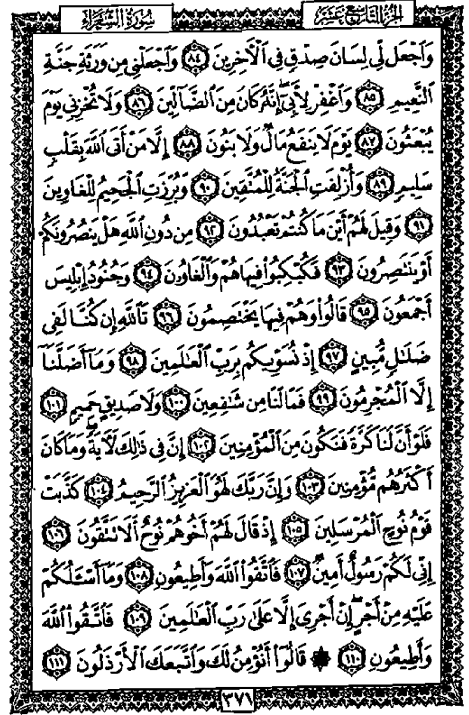 الجزء التاسع عشر سورة الشعراء
وَٱجْعَل لِّى لِسَانَ صِدْقٍ فِى ٱلْءَاخِرِينَ ٨٤ وَٱجْعَلْنِى مِن وَرَثَةِ جَنَّةِ
ٱلنَّعِيمِ ٨٥ وَٱغْفِرْ لِأَبِىٓ إِنَّهُۥ كَانَ مِنَ ٱلضَّآلِّينَ ٨٦ وَلَا تُخْزِنِى يَوْمَ
يُبْعَثُونَ ٨٧ يَوْمَ لَا يَنفَعُ مَالٌ وَلَا بَنُونَ ٨٨ إِلَّا مَنْ أَتَى ٱللَّهَ بِقَلْبٍ
سَلِيمٍ ٨٩ وَأُزْلِفَتِ ٱلْجَنَّةُ لِلْمُتَّقِينَ ٩٠ وَبُرِّزَتِ ٱلْجَحِيمُ لِلْغَاوِينَ
٩١ وَقِيلَ لَهُمْ أَيْنَ مَا كُنتُمْ تَعْبُدُونَ ٩٢ مِن دُونِ ٱللَّهِ هَلْ يَنصُرُونَكُمْ
أَوْ يَنتَصِرُونَ ٩٣ فَكُبْكِبُوا۟ فِيهَا هُمْ وَٱلْغَاوُۥنَ ٩٤ وَجُنُودُ إِبْلِيسَ
أَجْمَعُونَ ٩٥ قَالُوا۟ وَهُمْ فِيهَا يَخْتَصِمُونَ ٩٦ تَٱللَّهِ إِن كُنَّا لَفِى
ضَلَٰلٍ مُّبِينٍ ٩٧ إِذْ نُسَوِّيكُم بِرَبِّ ٱلْعَٰلَمِينَ ٩٨ وَمَآ أَضَلَّنَآ
إِلَّا ٱلْمُجْرِمُونَ ٩٩ فَمَا لَنَا مِن شَٰفِعِينَ ١٠٠ وَلَا صَدِيقٍ حَمِيمٍ ١٠١
فَلَوْ أَنَّ لَنَا كَرَّةً فَنَكُونَ مِنَ ٱلْمُؤْمِنِينَ ١٠٢ إِنَّ فِى ذَٰلِكَ لَءَايَةً وَمَا كَانَ
أَكْثَرُهُم مُّؤْمِنِينَ ١٠٣ وَإِنَّ رَبَّكَ لَهُوَ ٱلْعَزِيزُ ٱلرَّحِيمُ ١٠٤ كَذَّبَتْ
قَوْمُ نُوحٍ ٱلْمُرْسَلِينَ ١٠٥ إِذْ قَالَ لَهُمْ أَخُوهُمْ نُوحٌ أَلَا تَتَّقُونَ ١٠٦
إِنِّى لَكُمْ رَسُولٌ أَمِينٌ ١٠٧ فَٱتَّقُوا۟ ٱللَّهَ وَأَطِيعُونِ ١٠٨ وَمَآ أَسْـَٔلُكُمْ
عَلَيْهِ مِنْ أَجْرٍ إِنْ أَجْرِىَ إِلَّا عَلَىٰ رَبِّ ٱلْعَٰلَمِينَ ١٠٩ فَٱتَّقُوا۟ ٱللَّهَ
وَأَطِيعُونِ ١١٠ ۞ قَالُوٓا۟ أَنُؤْمِنُ لَكَ وَٱتَّبَعَكَ ٱلْأَرْذَلُونَ ١١١
٣٧١